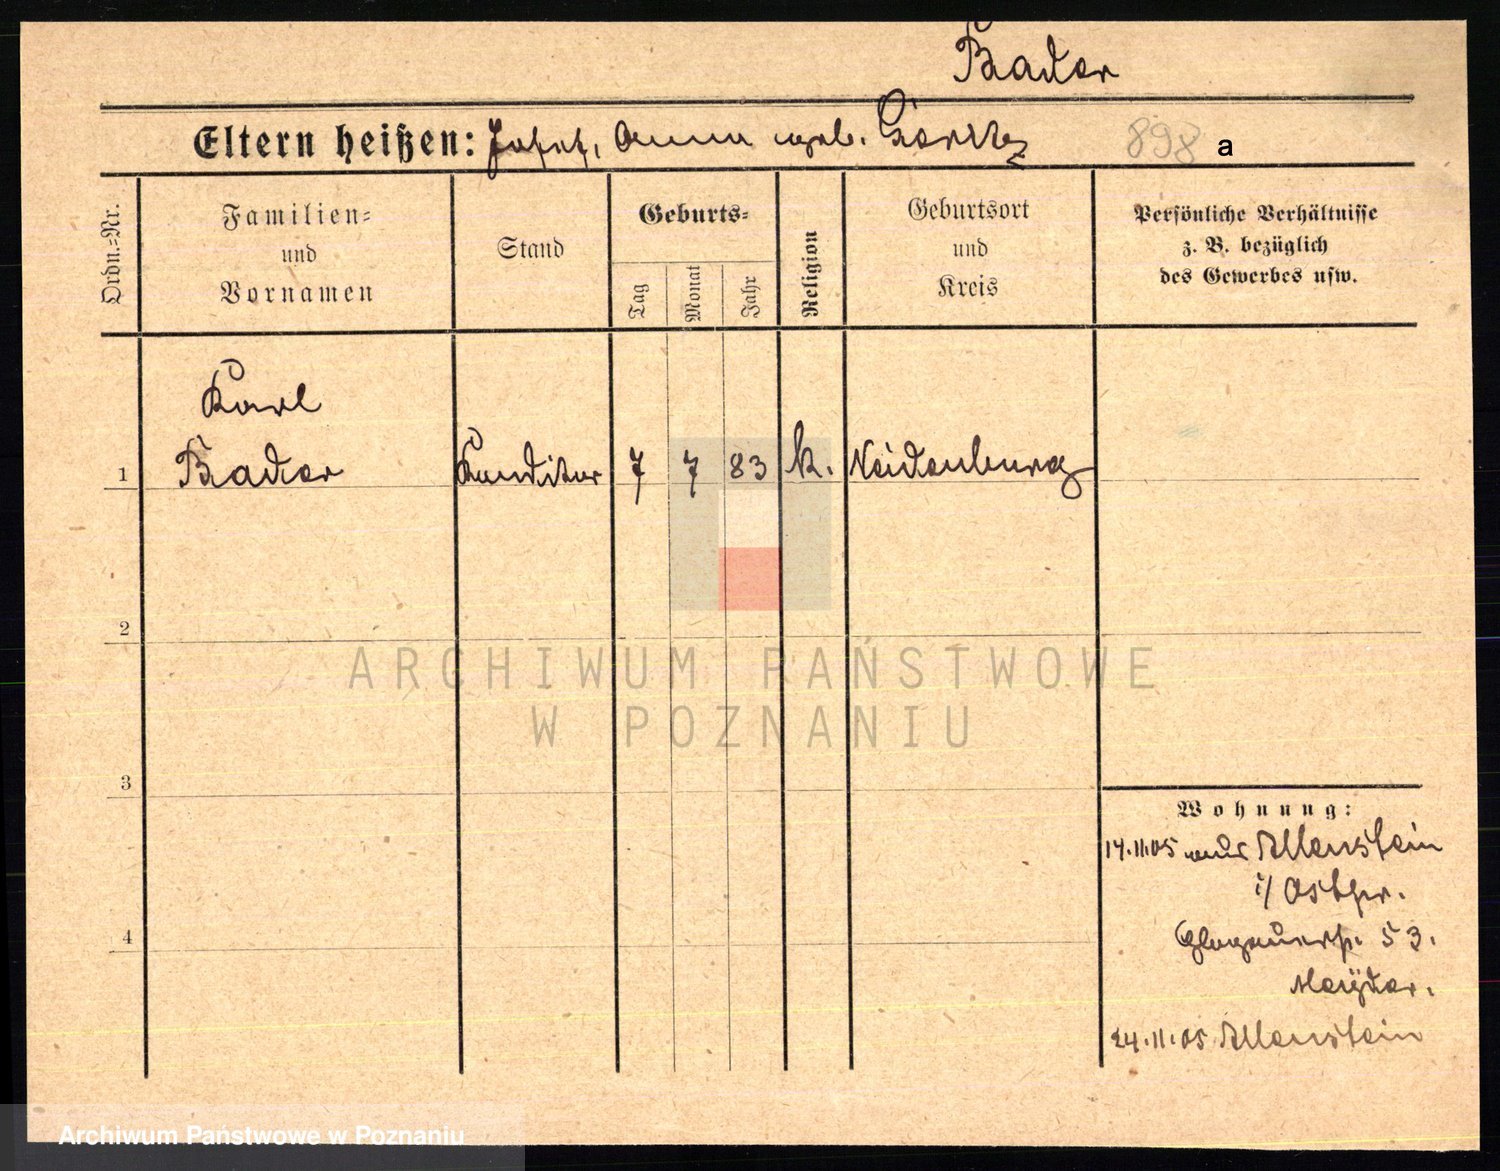 Bader
Eltern heißen: Josef, Anna geb.
898 a
Ordn.=Nr.
Familien= und Vornamen
Stand
Geburts=
Tag
Monat
Jahr
Religion
Geburtsort und Kreis
Persönliche Verhältnisse
z. B. bezüglich
des Gewerbes usw.
Karl
1 Bader Konditor 7 7 83 k. Neidenburg
2
ARCHIWUM PAŃSTWOWE
W POZNANIU
3
Wohnung:
14.11.05 aus Allenstein
i/ Ostpr.
4
Glogauerstr. 53.
24.11.05 Allenstein
Archiwum Państwowe w Poznaniu